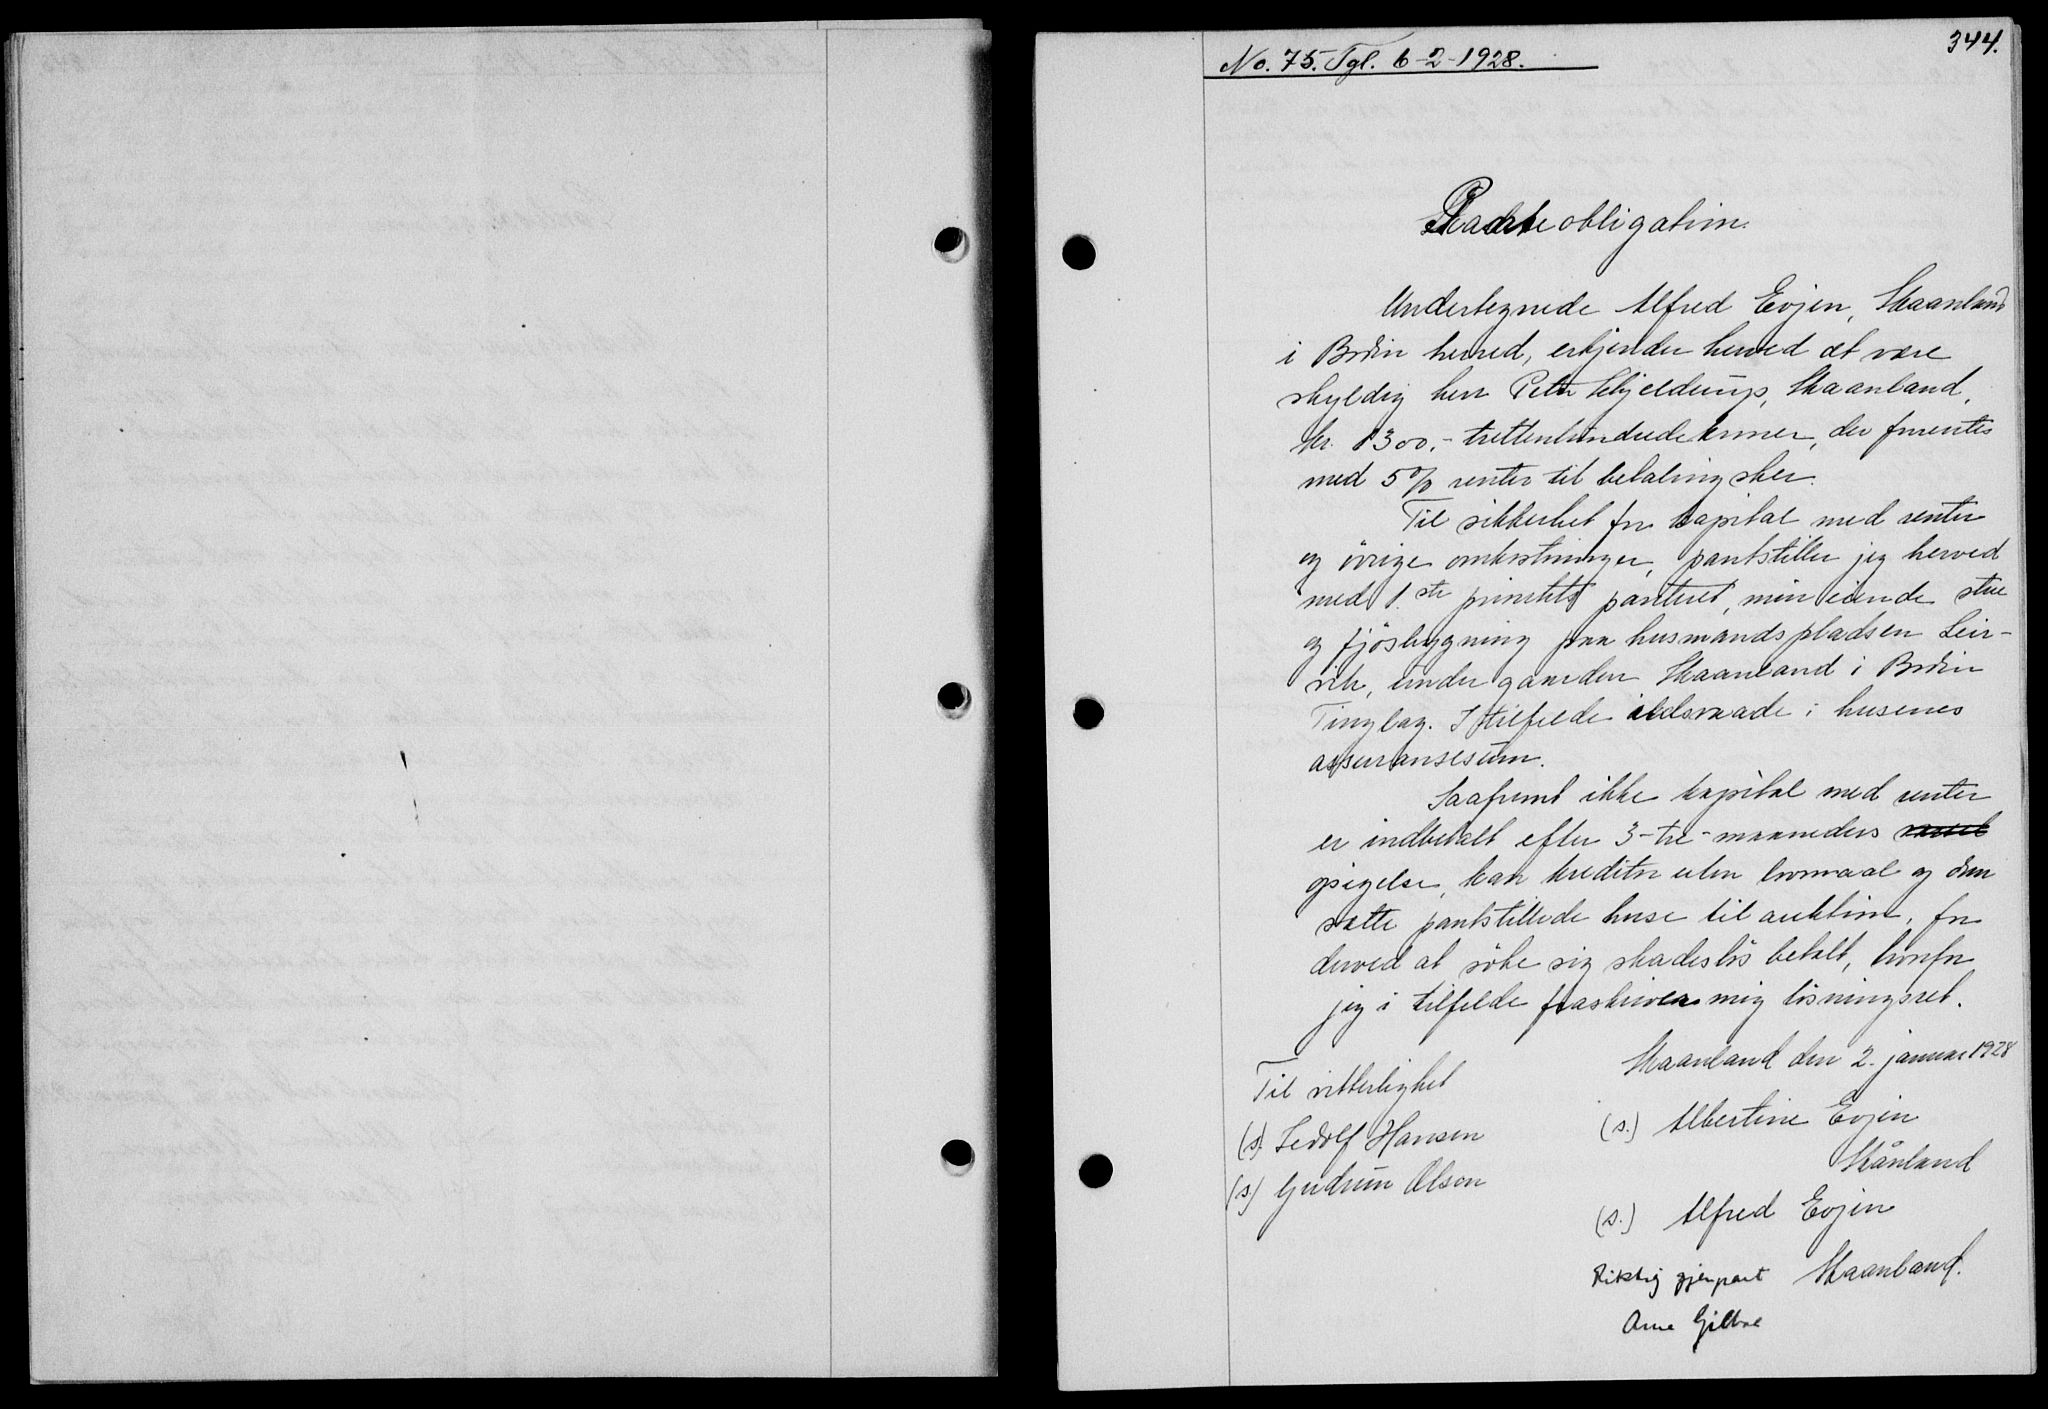 344.
No. 75. Tgl. 6-2-1928.
Panteobligation.
Undertegnede Alfred Evjen, Skaanland
i Bodin herred, erkjender herved at være
skyldig herr Peter Schjelderup, Skaanland,
kr. 1300,- trettenhundrede kroner, der forrentes
med 5% renter til betaling sker.
Til sikkerhet for kapital med renter
og övrige omkostninger, pantstiller jeg herved
med 1.ste prioritets panteret, min eiende stue
og fjösbygning paa husmandspladsen Leir-
vik, under gaarden Skaanland i Bodin
Tinglag. I tilfelde ildsvaade i husenes
assuransesum.
Saafremt ikke kapital med renter
er indbetalt efter 3-tre-maaneders varsel
opsigelse, kan kreditor uten lovmaal og dom
sætte pantstillede huse til auktion, for
derved at söke sig skadeslös betalt, hvorfor
jeg i tilfelde fraskriver mig lösningsret.
Skaanland den 2. januar 1928
Til vitterlighet
(s.) Albertine Evjen
(s) Sedolf Hansen
Skånland
(s) Gudrun Olsen
(s.) Alfred Evjen
Skaanland.
Riktig gjenpart
Arne Gilboe